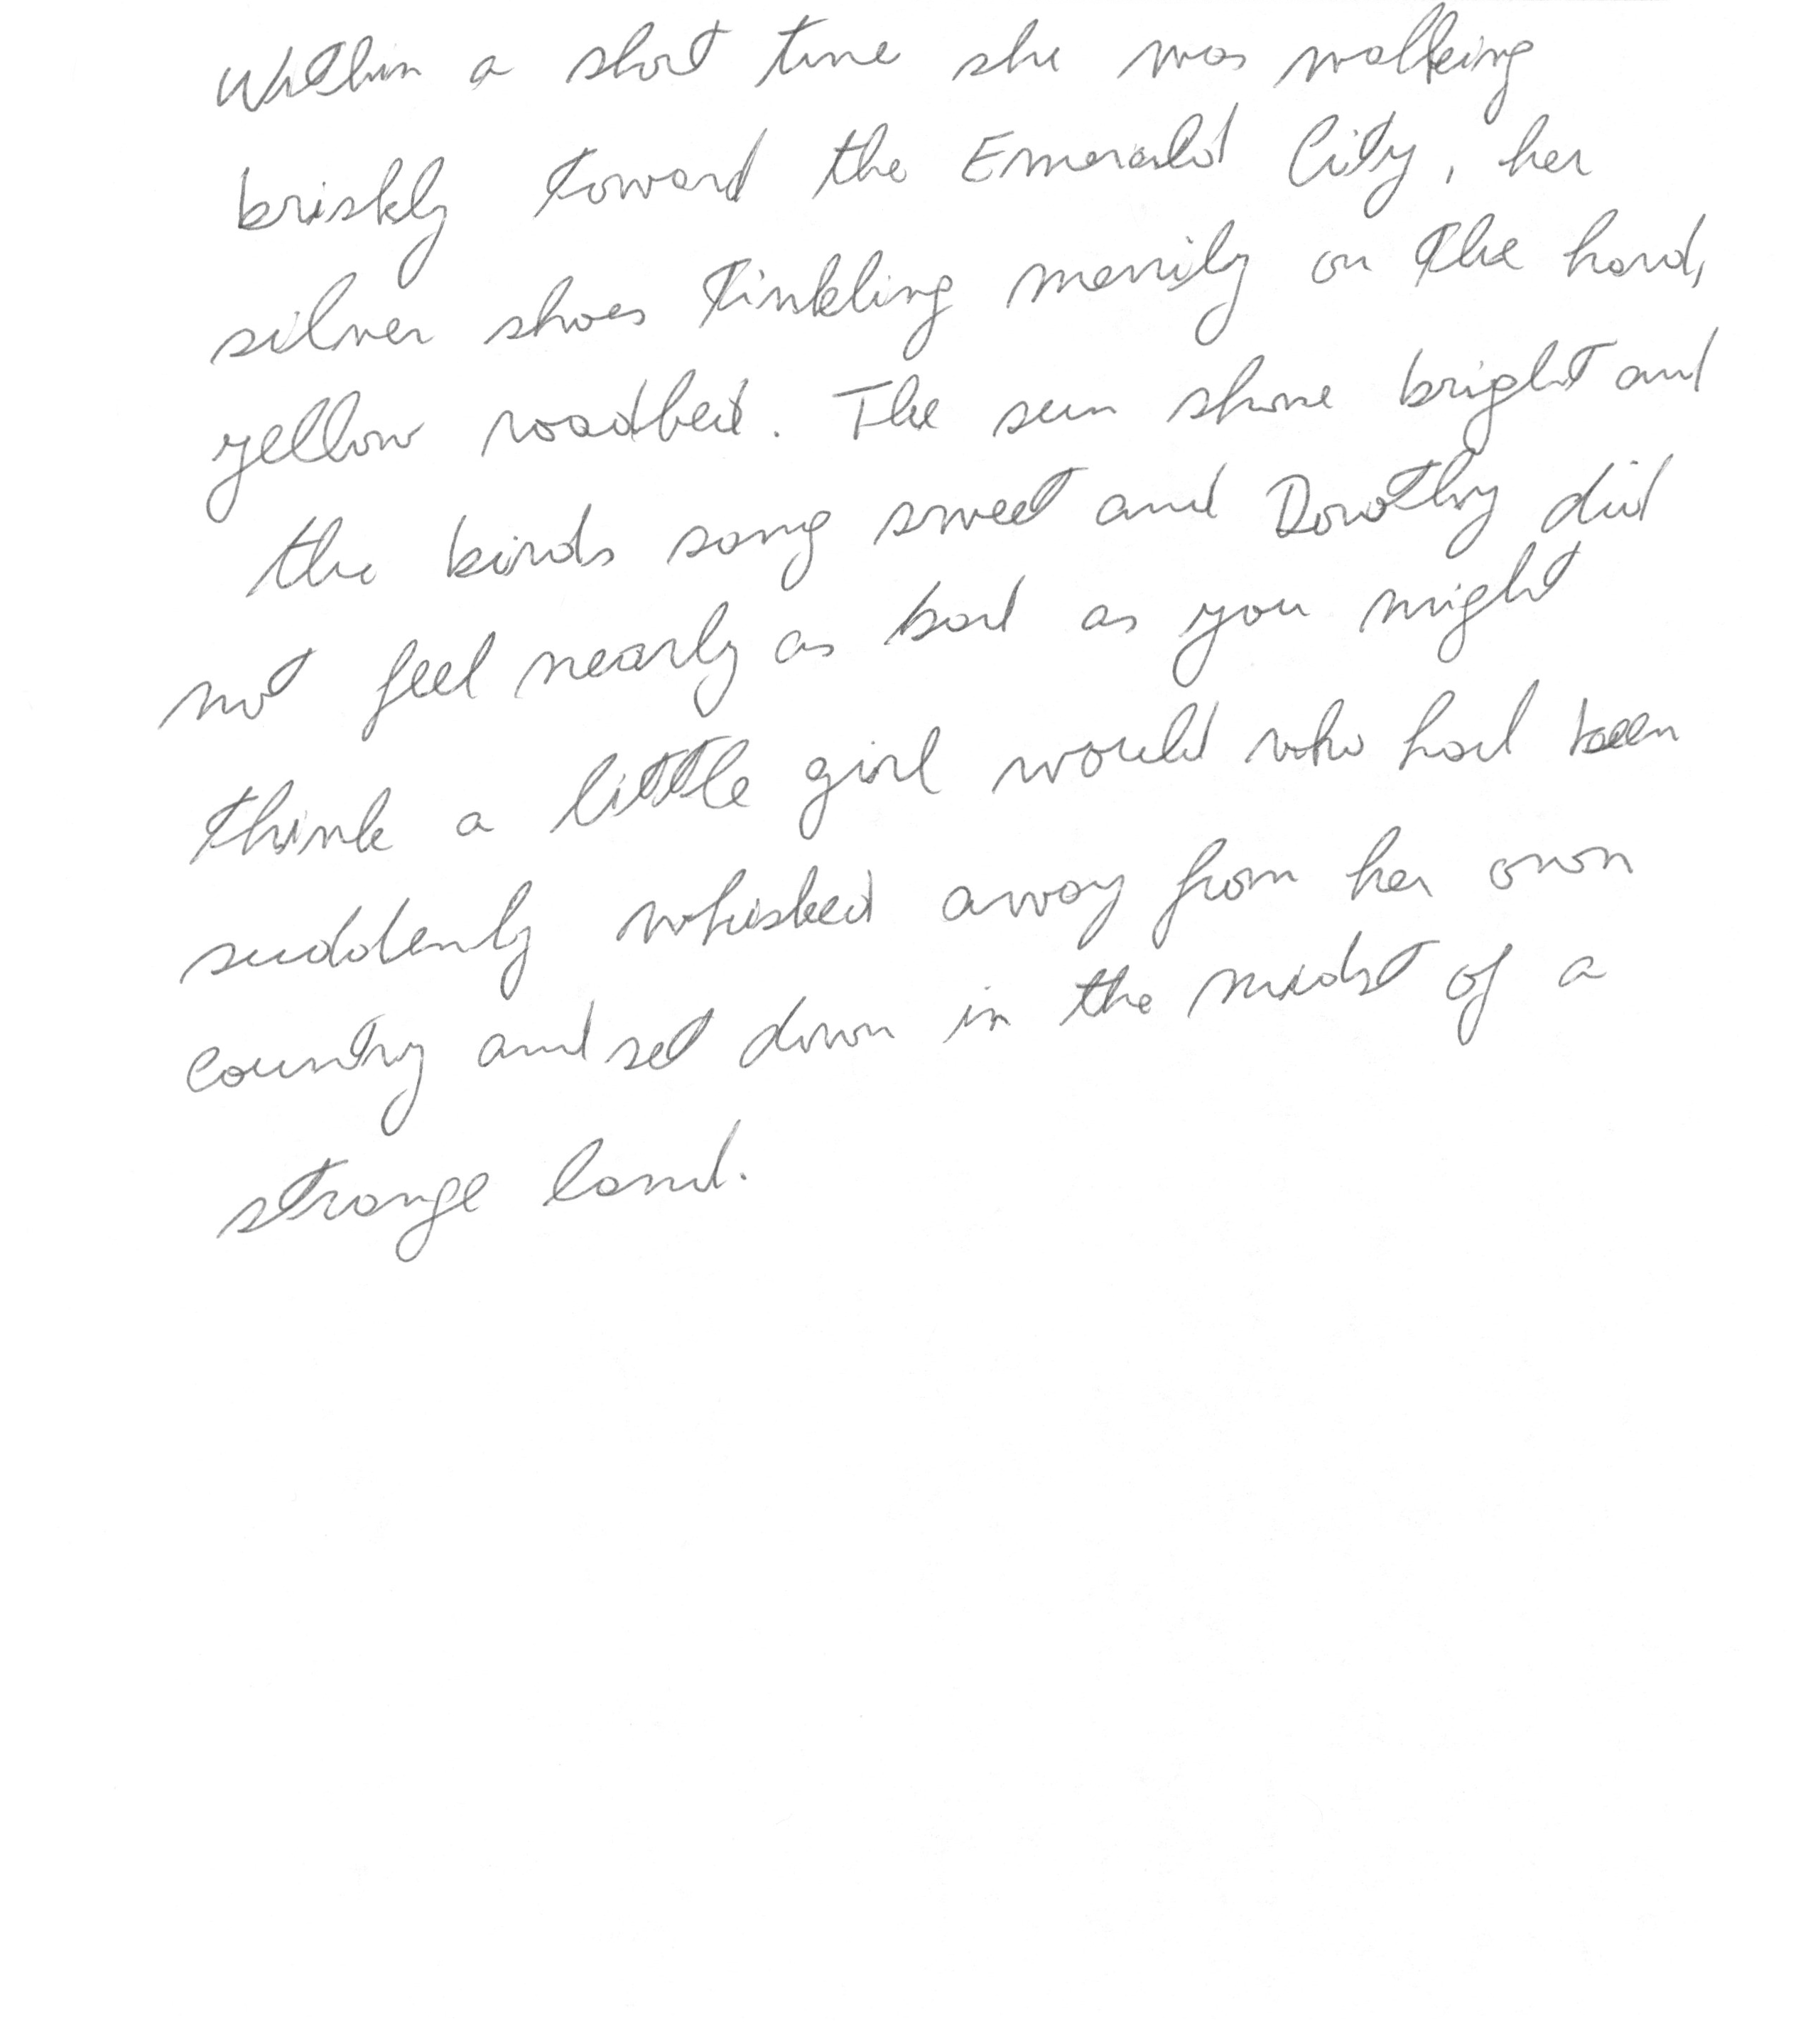 Within a short time she was walking
briskly toward the Emerald City, her
silver shoes tinkling merrily on the hard,
yellow roadbed. The sun shone bright and
the birds sang sweet and Dorothy did
not feel nearly as bad as you might
think a little girl would who had been
suddenly whisked away from her own
country and set down in the midst of a
strange land.